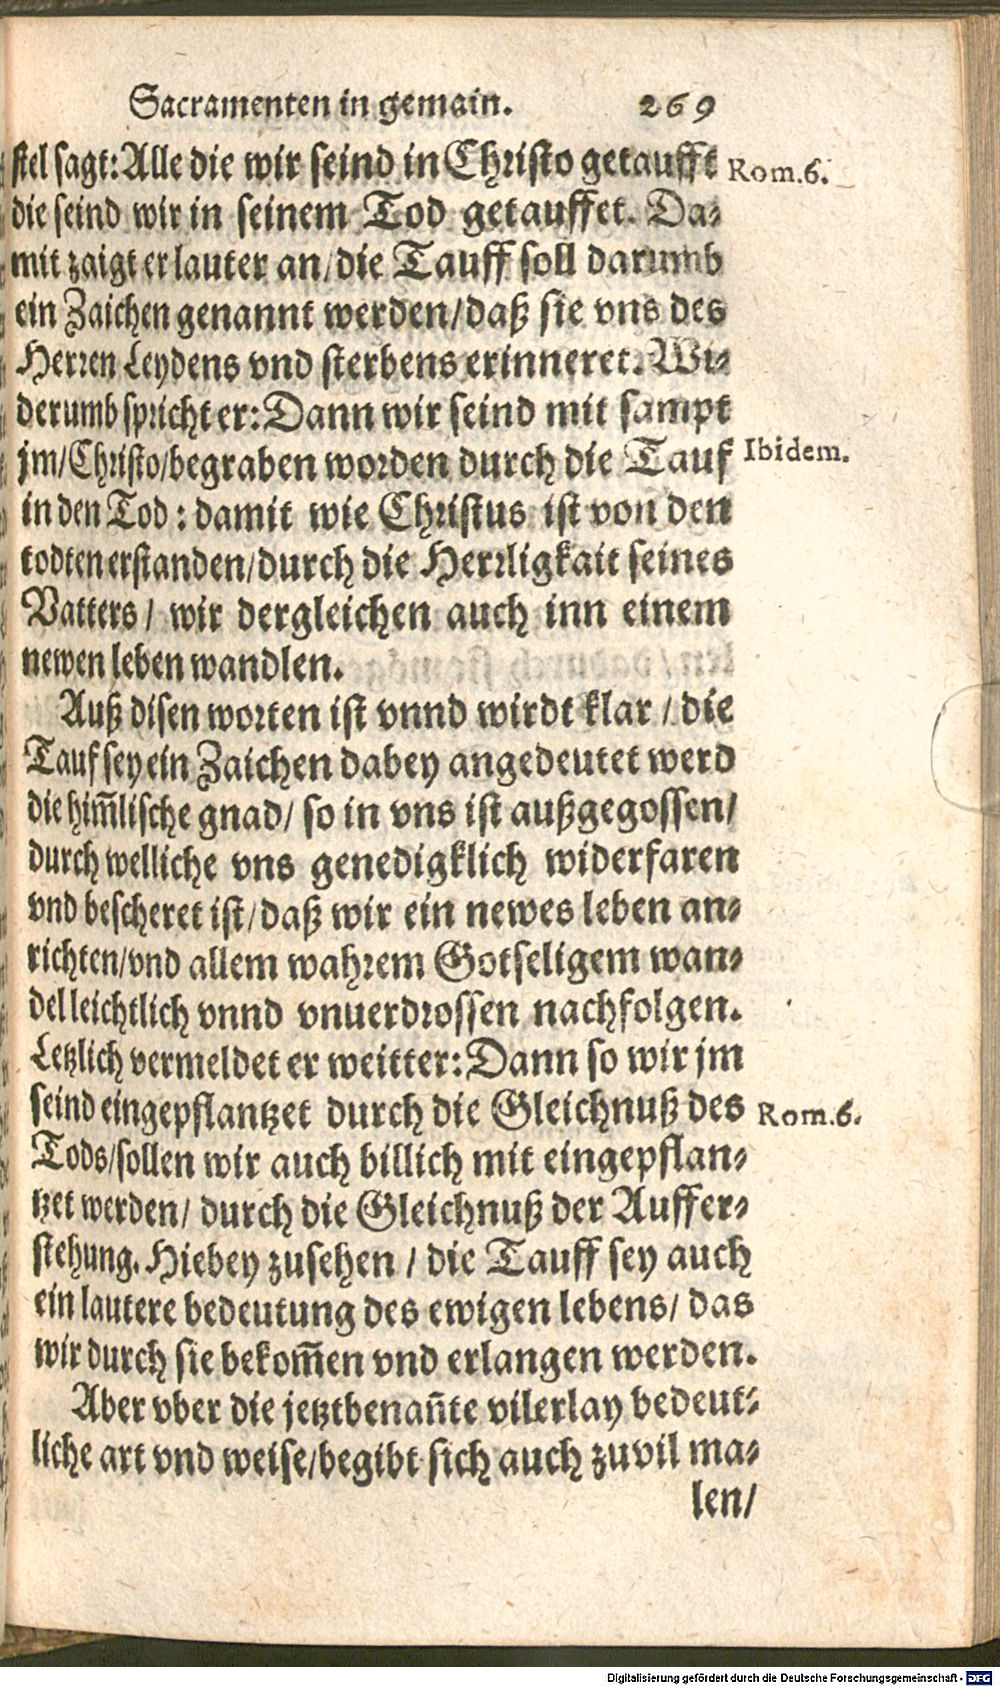 Sacramenten in gemain. 269
stel sagt: Alle die wir seind in Christo getaufft Rom.6.
die seind wir in seinem Tod getauffet. Da⸗
mit zaigt er lauter an/ die Tauff soll darumb
ein Zaichen genannt werden/ daß sie vns des
Herren Leydens vnd sterbens erinneret. Wi⸗
derumb spricht er: Dann wir seind mit sampt
jm/ Christo/ begraben worden durch die Tauf Ibidem.
in den Tod: damit wie Christus ist von den
todten erstanden/ durch die Herrligkait seines
Vatters/ wir dergleichen auch inn einem
newen leben wandlen.
Auß disen worten ist vnnd wirdt klar/ die
Tauf sey ein Zaichen dabey angedeutet werd
die him̃lische gnad/ so in vns ist außgegossen/
durch welliche vns genedigklich widerfaren
vnd bescheret ist/ daß wir ein newes leben an⸗
richten/ vnd allem wahrem Gotseligem wan⸗
del leichtlich vnnd vnuerdrossen nachfolgen.
Letzlich vermeldet er weitter: Dann so wir jm
seind eingepflantzet durch die Gleichnuß des Rom.6.
Tods/ sollen wir auch billich mit eingepflan⸗
tzet werden/ durch die Gleichnuß der Auffer⸗
stehung. Hiebey zusehen/ die Tauff sey auch
ein lautere bedeutung des ewigen lebens/ das
wir durch sie bekom̃en vnd erlangen werden.
Aber vber die jetztbenañte vilerlay bedeut⸗
liche art vnd weise/ begibt sich auch zuvil ma⸗
len/
Digitalisierung gefördert durch die Deutsche Forschungsgemeinschaft - DFG